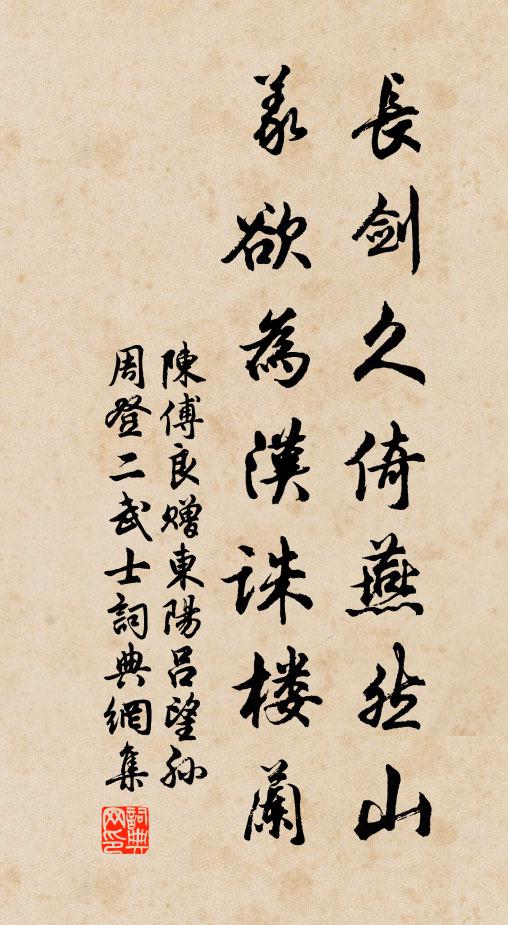 長劍久倚燕然山
義欲為漢誅樓蘭
陳傅良贈東陽呂望孫
周登二武士詞典網集
詞典网印